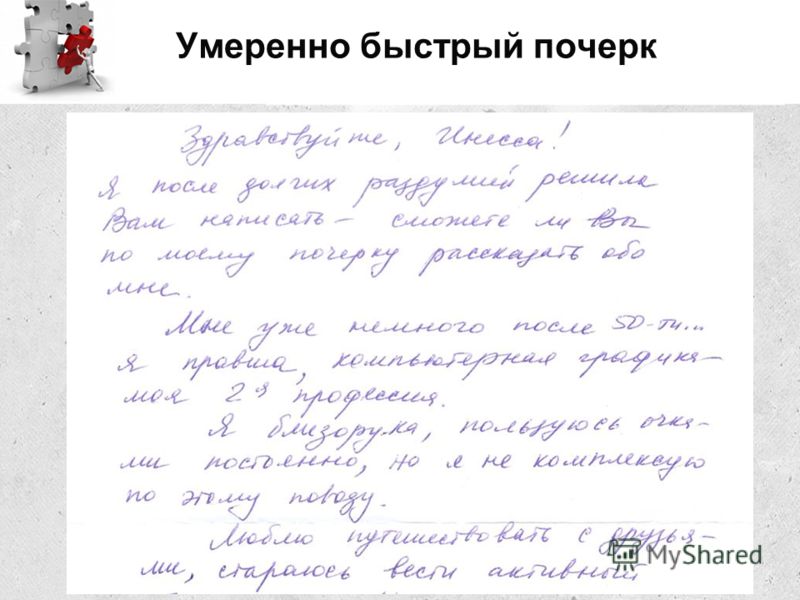 Умеренно быстрый почерк
Здравствуйте, Инесса!
Я после долгих раздумий решила
Вам написать – сможете ли Вы
по моему почерку рассказать обо
мне.
Мне уже немного после 50-ти...
я правша, компьютерная графика–
моя 2я профессия.
Я близорука, пользуюсь очка-
ми постоянно, но я не комплексую
по этому поводу.
Люблю путешествовать с друзья-
ми, стараюсь вести активный
MyShared